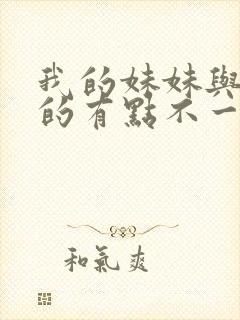 我的妹妹與
的有點不一
和氣爽